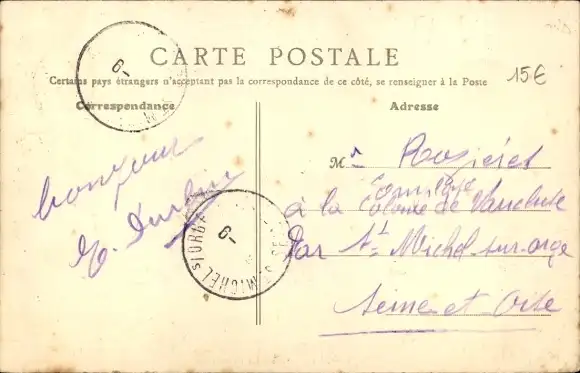 CARTE POSTALE
Certains pays étrangers n'acceptant pas la correspondance de ce côté, se renseigner à la Poste
15€
Correspondance
Adresse
bonjour
Mr Rozières
à la Colonie de Vaucluse
Par St Michel-sur-orge
Seine-et-Oise